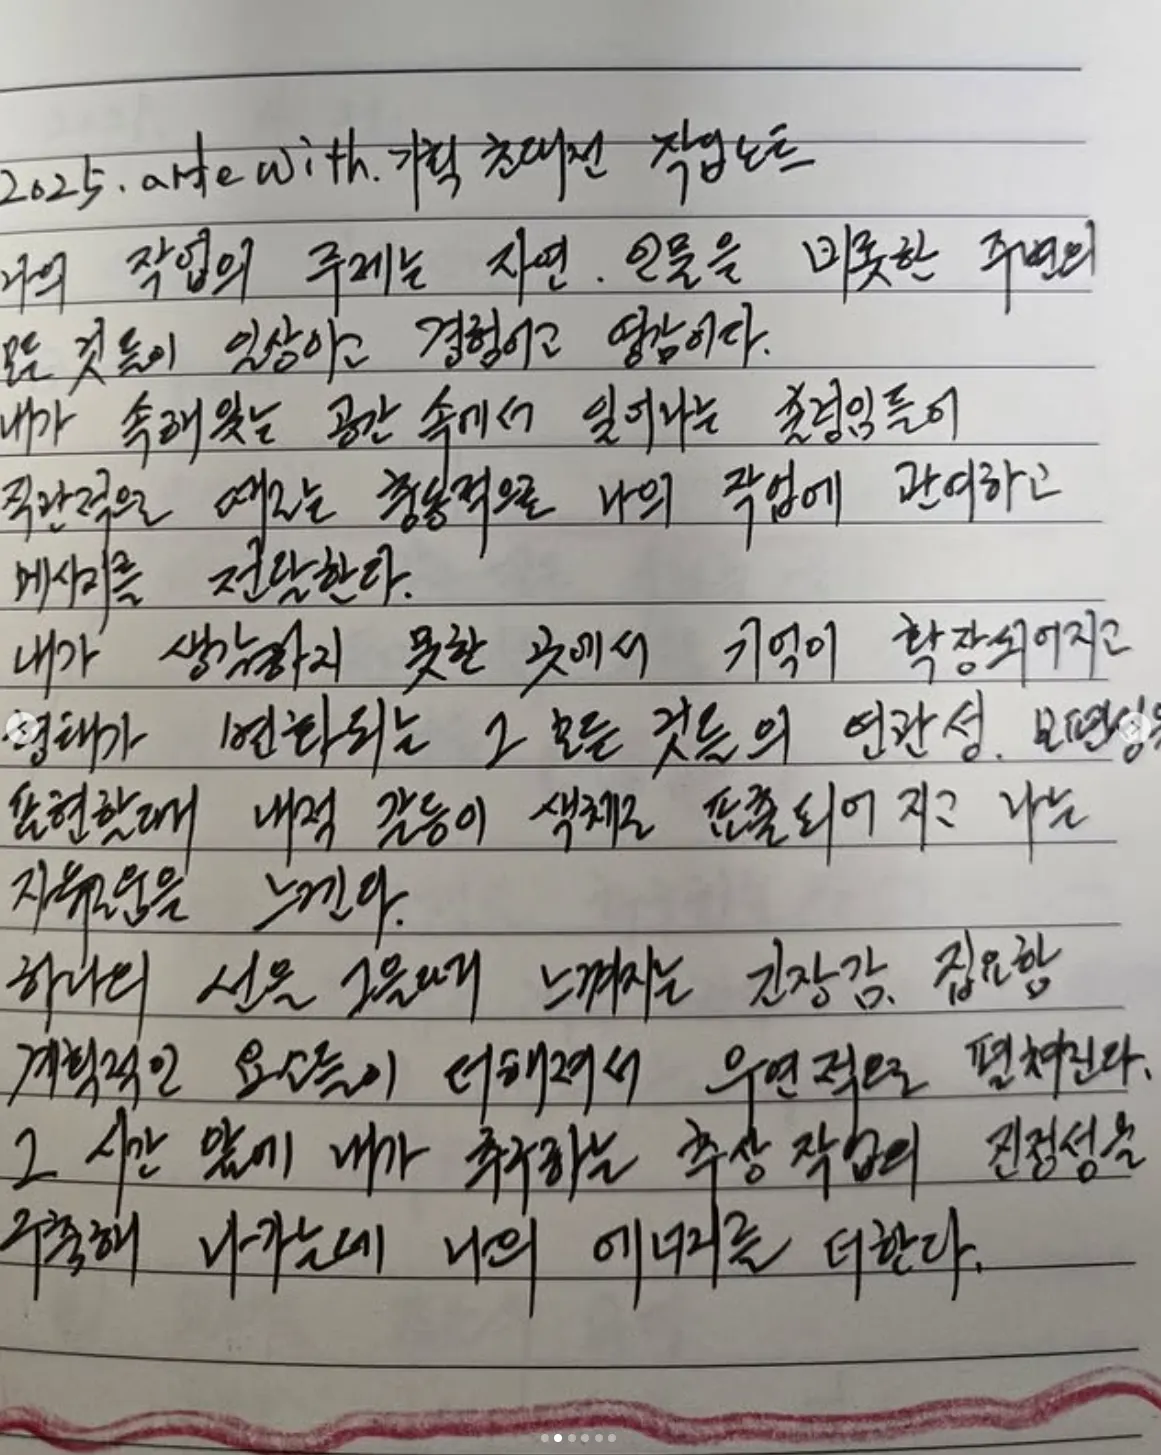 2025. arte with. 기획 초대전 작업노트
나의 작업의 주제는 자연. 인물을 비롯한 주변의
모든 것들이 일상이고 경험이고 영감이다.
내가 속해있는 공간 속에서 일어나는 움직임들이
직관적으로 때로는 충동적으로 나의 작업에 관여하고
메시지를 전달한다.
내가 생각하지 못한 곳에서 기억이 확장되어지고
형태가 변화되는 그 모든 것들의 연관성.
표현할때 내적 갈등이 색체로 표출되어 지고 나는
자유로움을 느낀다.
하나의 선을 그을때 느껴지는 긴장감. 집요함
계획적인 요소들이 더해져서 우연적으로 펼쳐진다.
그 시간 앞에 내가 추구하는 추상 작업의 진정성을
구축해 나가는데 나의 에너지를 더한다.